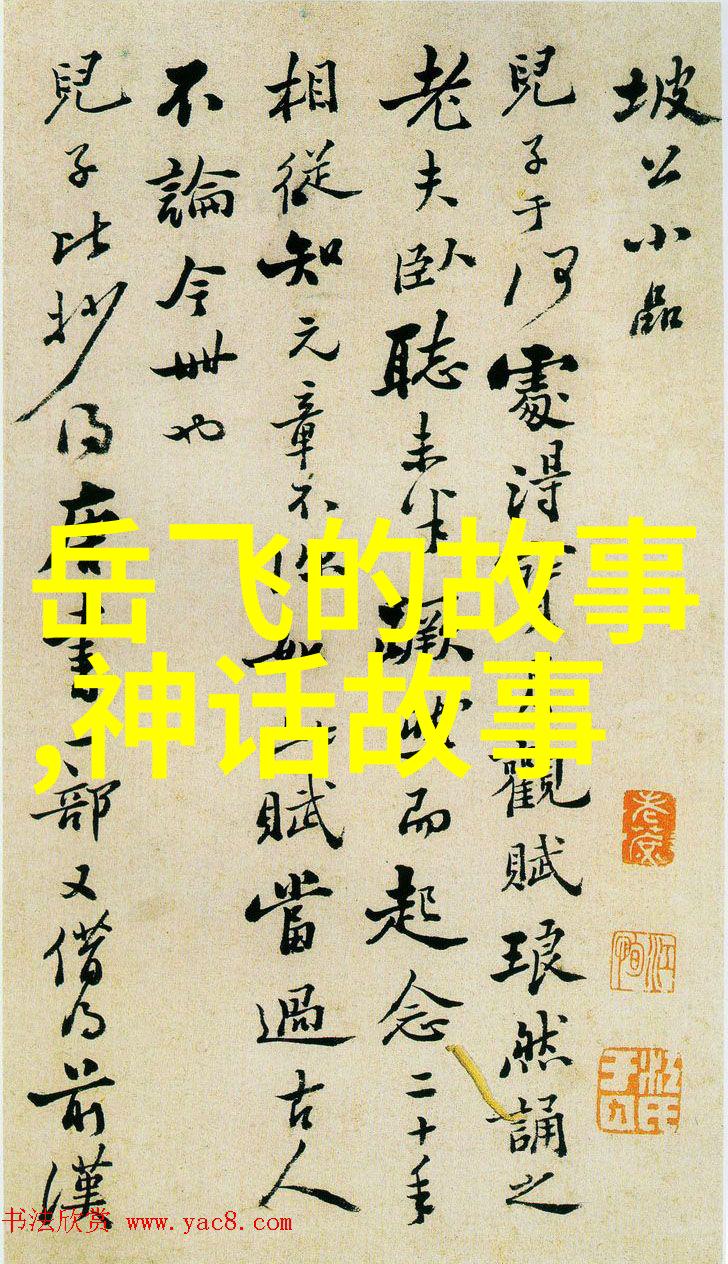 坡公小品
兒子于何處得寶月觀賦琅然誦之
老夫臥聽未半蹶然而起念二十年
相從知元章不如此賦當過古人
不論今世也
兒子比抄得唐書一部又借得前漢
岳飞的故事
,神话故事
书法欣赏 www.yac8.com